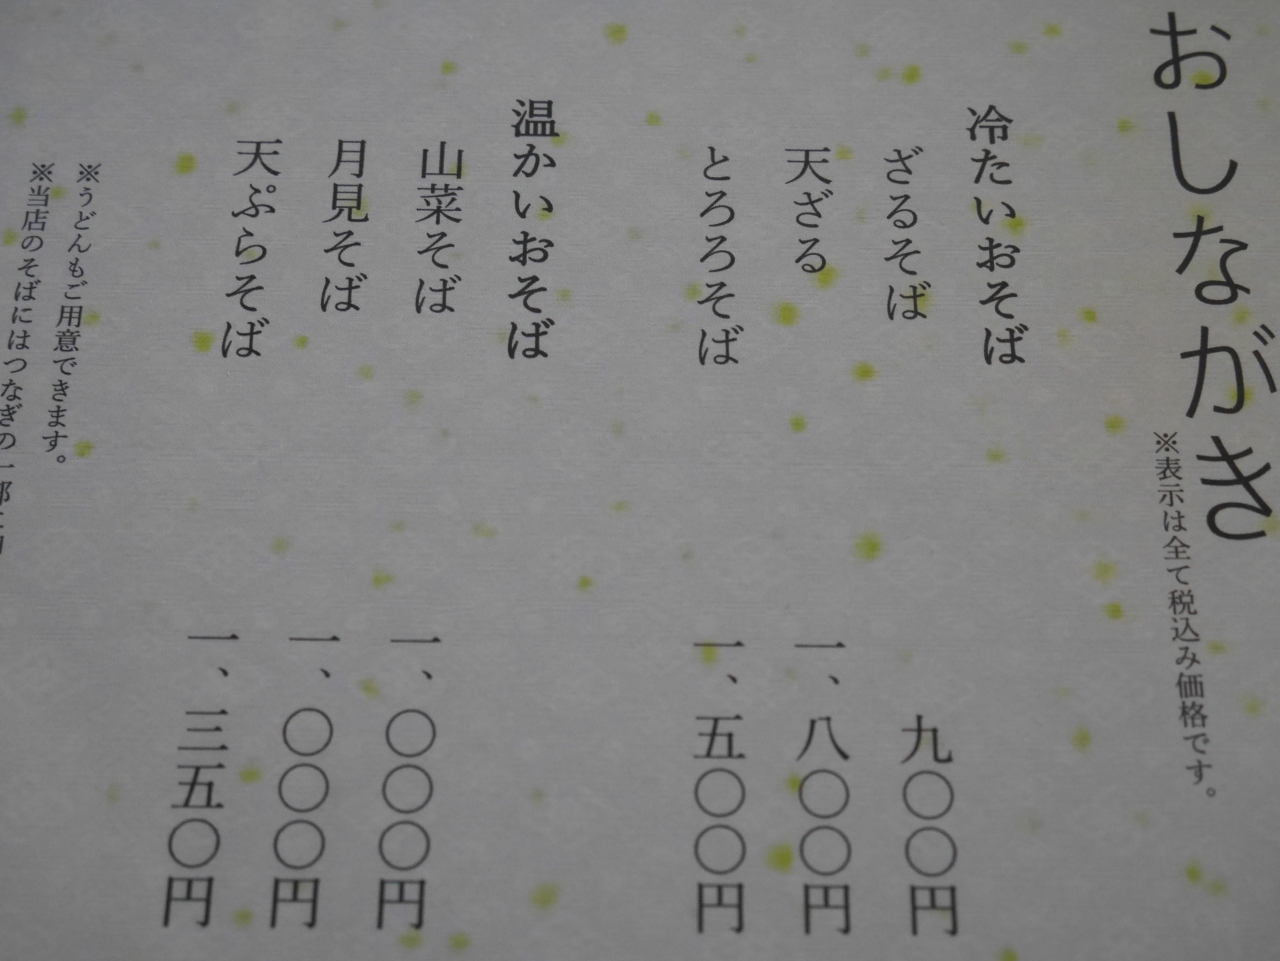 おしながき
※表示は全て税込み価格です。
冷たいおそば
ざるそば 九〇〇円
天ざる 一、八〇〇円
とろろそば 一、五〇〇円
温かいおそば
山菜そば 一、〇〇〇円
月見そば 一、〇〇〇円
天ぷらそば 一、三五〇円
※うどんもご用意できます。
※当店のそばにはつなぎの一部に